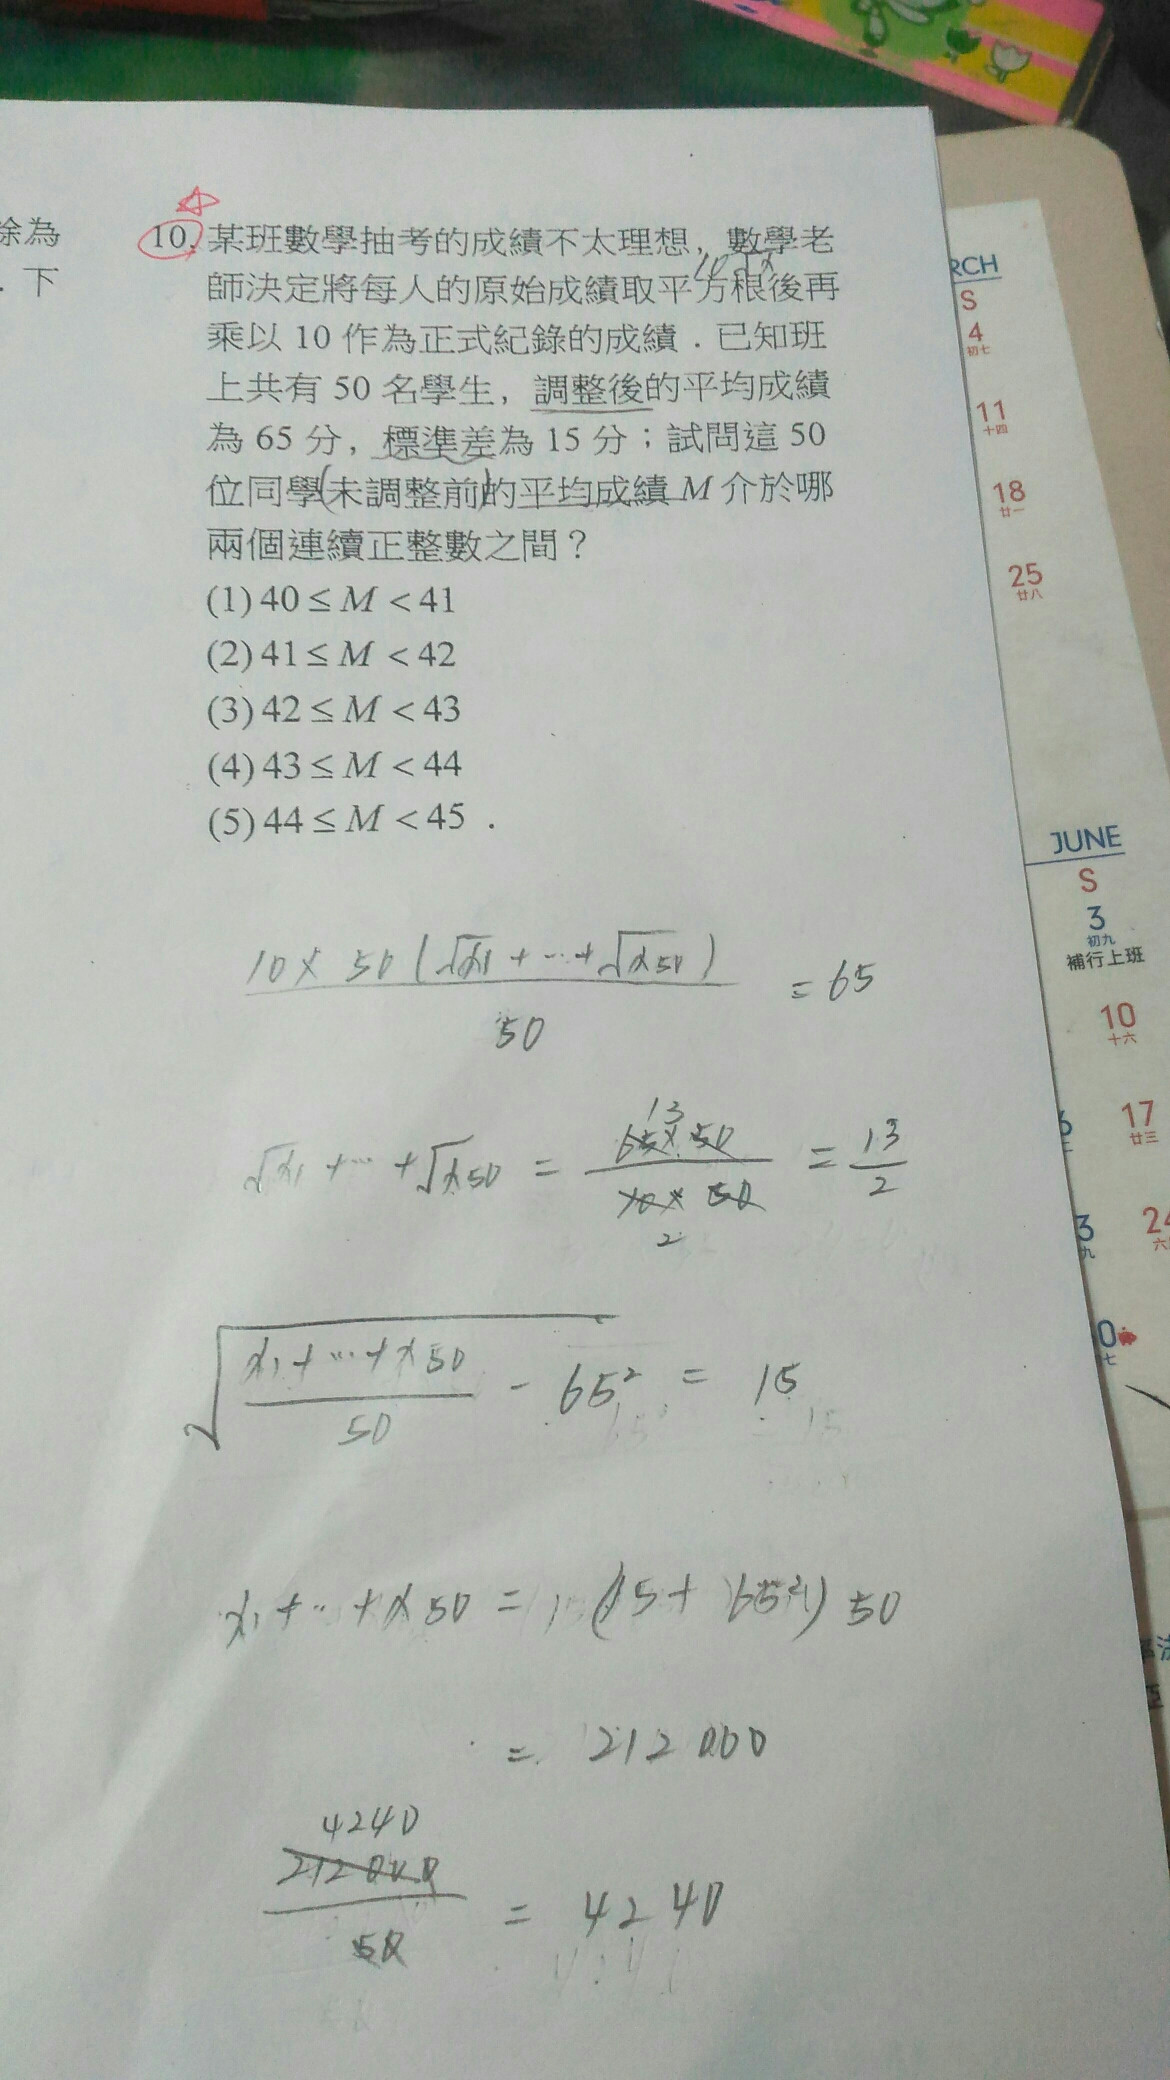 余為
. 下
10. 某班數學抽考的成績不太理想，數學老
10√x
師決定將每人的原始成績取平方根後再
乘以 10 作為正式紀錄的成績．已知班
上共有 50 名學生，調整後的平均成績
為 65 分，標準差為 15 分；試問這 50
位同學(未調整前)的平均成績 M 介於哪
兩個連續正整數之間？
(1) 40 ≤ M < 41
(2) 41 ≤ M < 42
(3) 42 ≤ M < 43
(4) 43 ≤ M < 44
(5) 44 ≤ M < 45 .
10 × 50 (√x1 + … + √x50)
= 65
50
√x1 + … + √x50 = 65 × 50 / 10 × 50 = 13 / 2
13
2
√ x1 + … + x50 / 50 - 65² = 15
x1 + … + x50 = (15 + 65²) 50
= 212000
4240
212000 / 50 = 4240
RCH
S
4
初七
11
十四
18
廿一
25
廿八
JUNE
S
3
初九
補行上班
10
十六
17
廿三
24
3
九
0
七